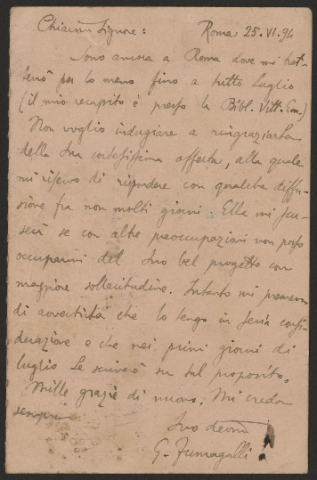 Chiar.mo Signore: Roma 25.VI.94
Sono ancora a Roma dove mi trat-
terrò per lo meno fino a tutto luglio
(il mio recapito è presso la Bibl. Vitt. Em.)
Non voglio indugiare a ringraziarla
della Sua cortesissima offerta, alla quale
mi riservo di rispondere con qualche diffu-
sione fra non molti giorni. Ella mi scu-
serà se con altre preoccupazioni non posso
occuparmi del Suo bel progetto con
maggiore sollecitudine. Intanto mi premeva
di avvertirla che lo tengo in seria consi-
derazione e che nei primi giorni di
luglio Le scriverò su tal proposito.
Mille grazie di nuovo. Mi creda
sempre
Suo devmo
G. Fumagalli